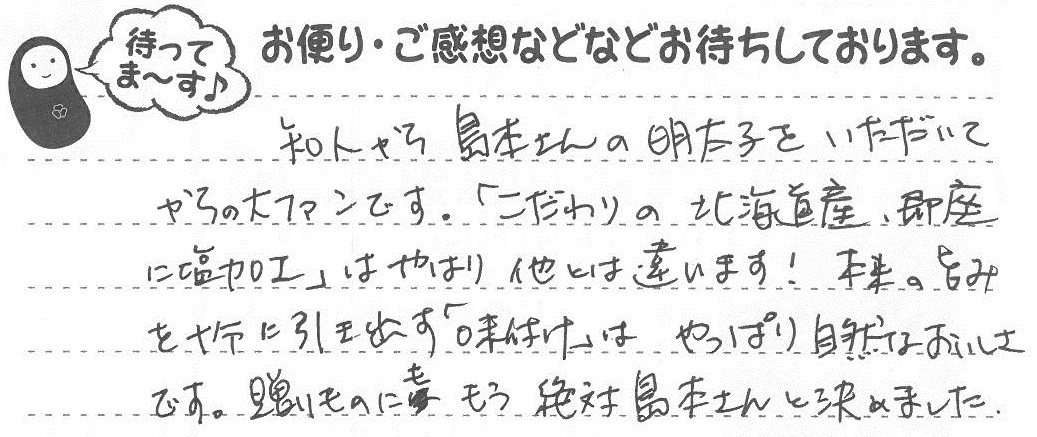 待って
ま〜す♪
お便り・ご感想などなどお待ちしております。
知人から 島本さんの明太子を いただいて
からの大ファンです。「こだわりの 北海道産、即座
に塩加工」はやはり 他とは違います! 本来の旨み
を十分に引き出す「味付け」は やっぱり自然なおいしさ
です。贈りものにも もう 絶対島本さんと決めました.